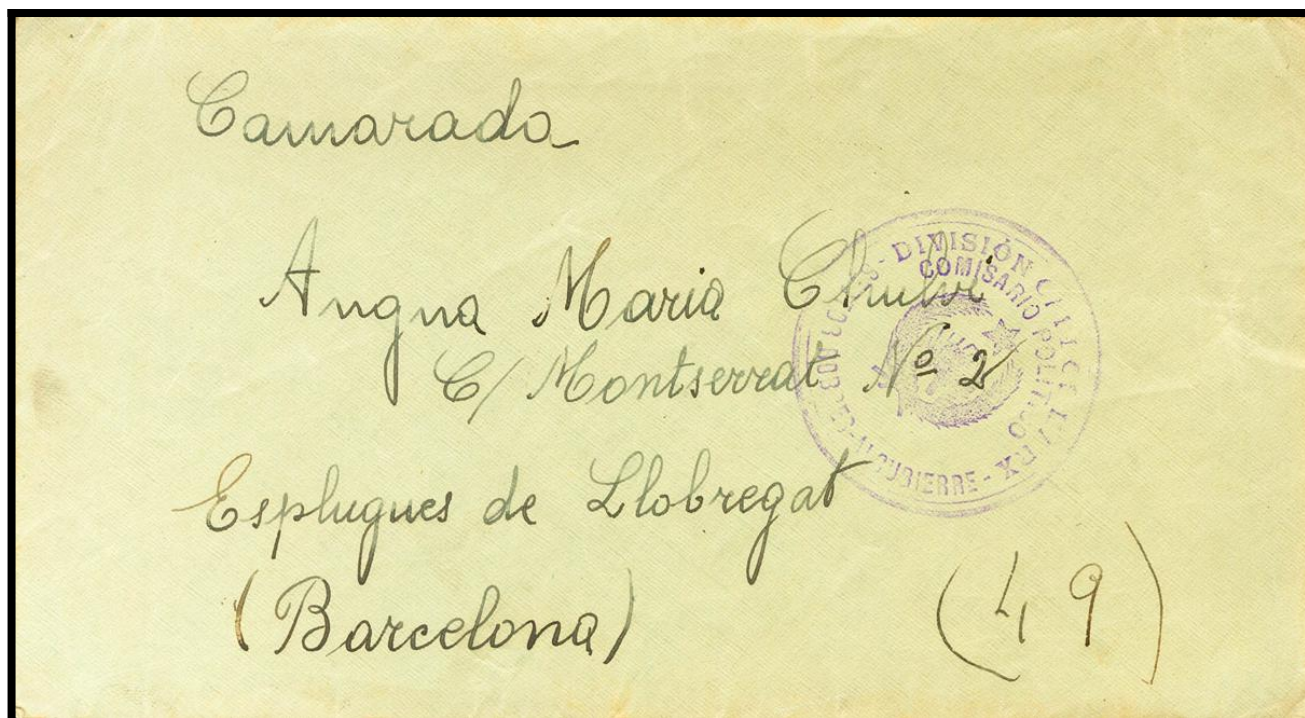 Camarada
Angna Maria Chulvi
C/ Montserrat Nº 2
Esplugues de Llobregat
(Barcelona)
(49)
DIVISIÓN
COMISARIO POLITICO